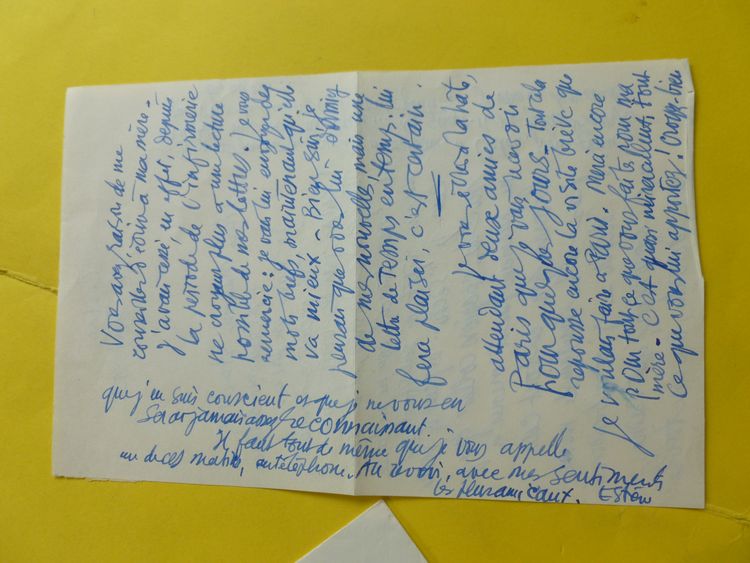 Vous avez raison de me
conseiller d'écrire à ma mère -
J'avais cessé, en effet, depuis
la période de l'infirmerie
ne croyant plus à une lecture
possible de mes lettres. Je vous
remercie : je vais lui envoyer des
mots brefs, maintenant qu'elle
va mieux - Bien sûr, je
pensais que vous lui donniez
de mes nouvelles, mais une
lettre de temps en temps lui
fera plaisir, c'est certain.
Je vous écris à la hâte,
attendant deux amies de
Paris que je vais revoir
pour quelques jours - Tout cela
repousse encore la visite brève que
je voulais faire à Paris. Merci encore
pour tout ce que vous faites pour ma
mère - C'est quasi miraculeux, tout
ce que vous lui apportez ! Croyez bien
que j'en suis conscient et que je ne vous en
serai jamais assez reconnaissant.
Il faut tout de même que je vous appelle
un de ces matins, au téléphone. Au revoir, avec mes sentiments
les plus amicaux.